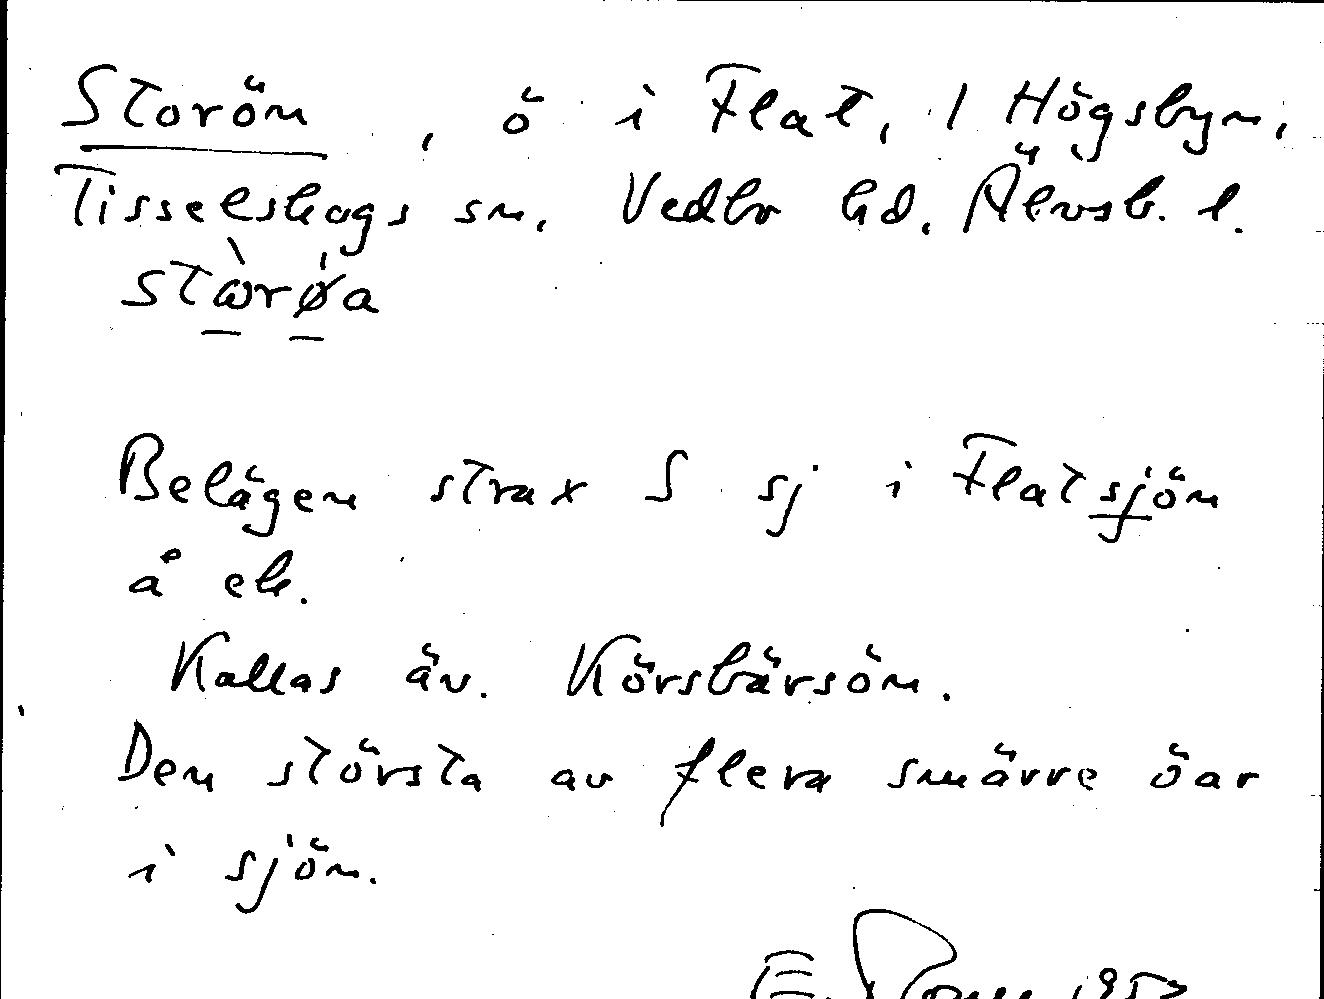 Storön, ö i Flat, 1 Högsbyn,
Tisselskogs sn, Vedbo hd. Älvsb. l.
Belägen strax S sj i Flatsjön
å ek.
Kallas äv. Körsbärsön.
Den största av flera smärre öar
i sjön.
E.